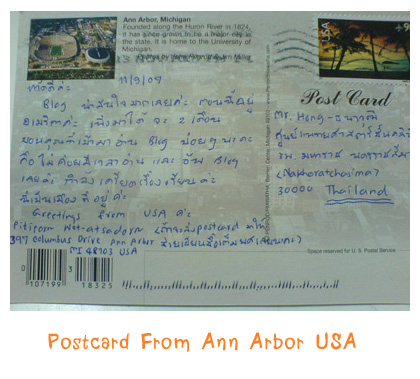 Ann Arbor, Michigan
Founded along the Huron River in 1824,
it has since grown to be a major city in
the state. It is home to the University of
Michigan.
USA
Post Card
11/9/09
สวัสดีค่ะ
Blog น่าสนใจมากเลยค่ะ ตอนนี้อยู่
อเมริกาค่ะ เพิ่งมาได้ 2 เดือน
ขอบคุณที่เข้ามาอ่าน Blog บ่อยๆ นะคะ
คือไม่ค่อยมีเวลาอ่าน และ อัพ Blog
เลยค่ะ กำลังเครียดเรื่องเรียนค่ะ
นี่เป็นเมืองที่อยู่ค่ะ
Greetings from USA ค่ะ
Pitiporn
397 Columbus Drive Ann Arbor
MI 48103 USA
Mr. Hong-
ศูนย์แพทยศาสตร์ชั้นคลินิก
รพ. มหาราช นครราชสีมา
(Nakhoratchasima)
30000 Thailand
Space reserved for U.S. Postal Service
0 107199
3 18325
Postcard From Ann Arbor USA